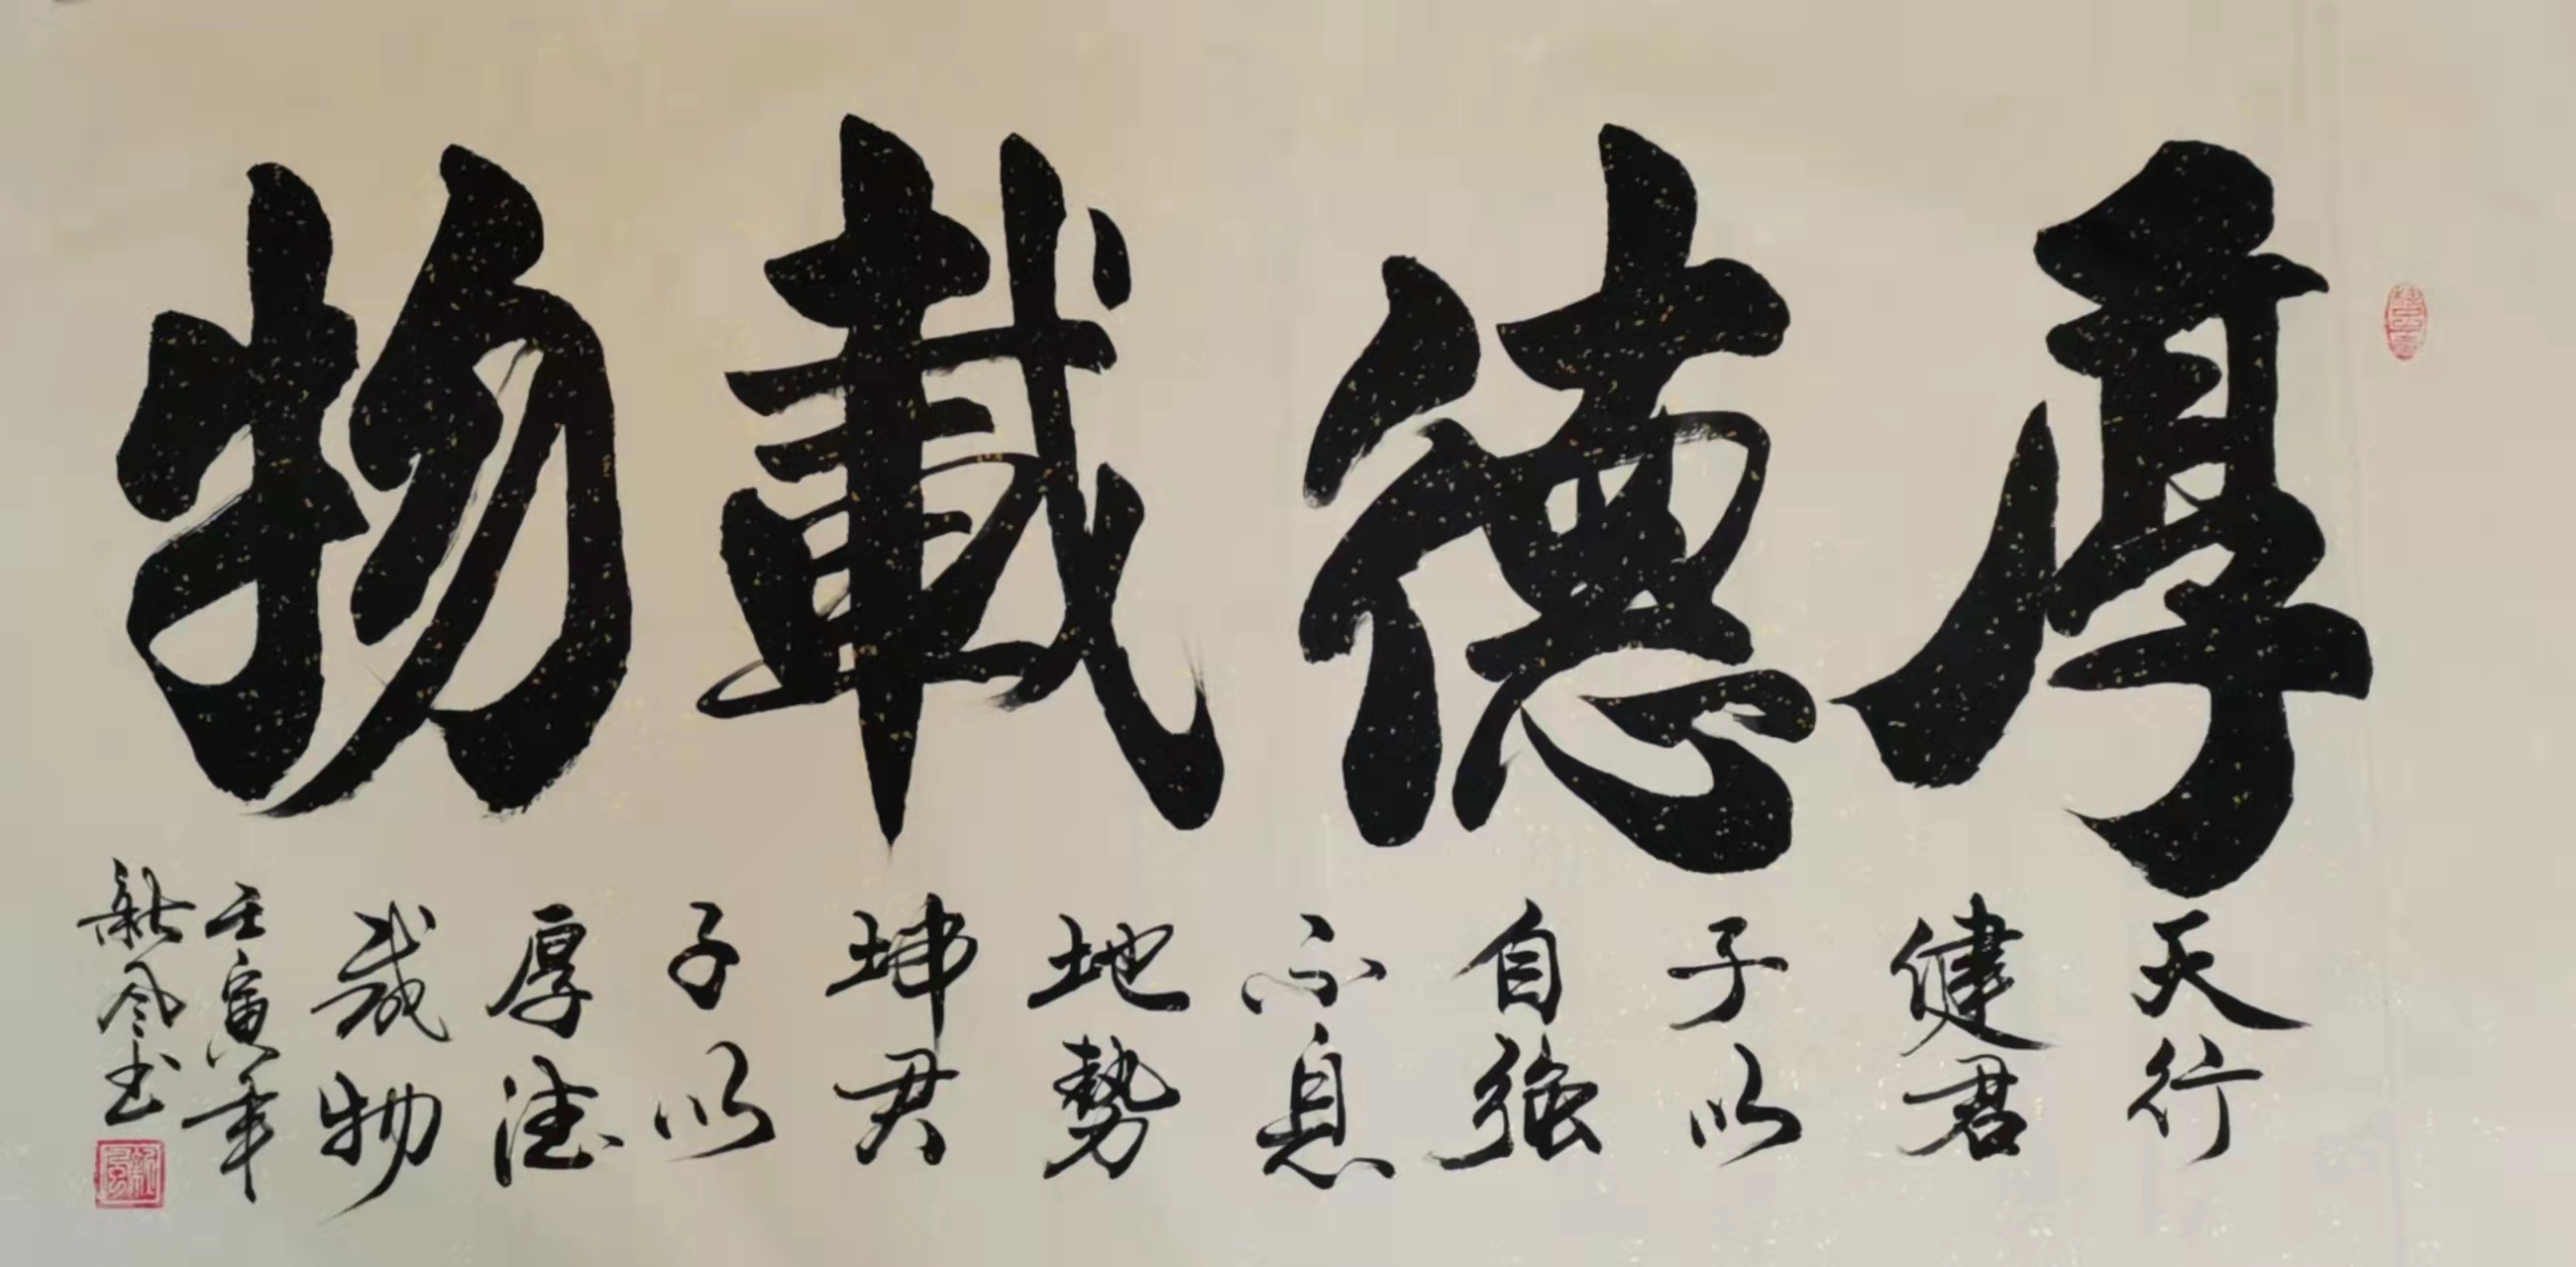 厚德載物
天行
健君
子以
自強
不息
地勢
坤君
子以
厚德
載物
壬寅年
新風书